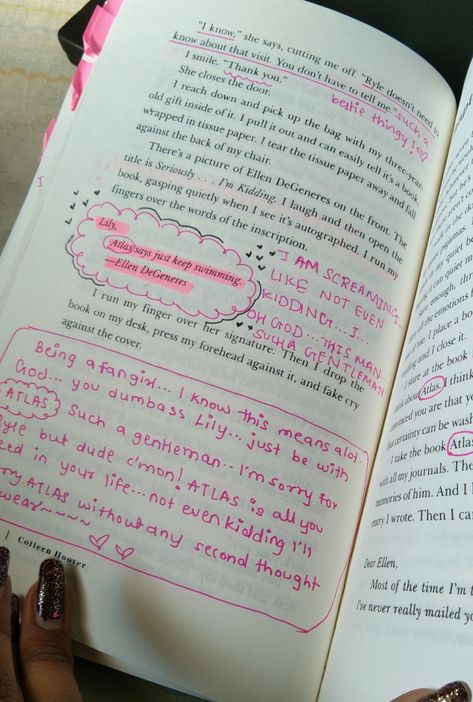 "I know," she says, cutting me off. "Ryle doesn't need to
know about that visit. You don't have to tell me."
such a
bestie thingy!
I smile. "Thank you."
She closes the door.
I reach down and pick up the bag with my three-year-
old gift inside of it. I pull it out and can easily tell it's a book
wrapped in tissue paper. I tear the tissue paper away and fall
against the back of my chair.
There's a picture of Ellen DeGeneres on the front. The
title is Seriously . . . I'm Kidding. I laugh and then open the
book, gasping quietly when I see it's autographed. I run my
fingers over the words of the inscription.
Lily,
Atlas says just keep swimming.
—Ellen DeGeneres
I AM SCREAMING...
LIKE NOT EVEN
KIDDING... I...
OH GOD... THIS MAN..
SUCH A GENTLEMAN
I run my finger over her signature. Then I drop the
book on my desk, press my forehead against it, and fake cry
against the cover.
Being a fangirl... I know this means alot..
God... you dumbass Lily... just be with
ATLAS
Such a gentleman... I'm sorry for
but dude c'mon! ATLAS is all you
in your life... not even kidding I'll
ATLAS without any second thought
swear~~~~
Colleen Hoover
stare at the book
Atlas. I think
you are that y
that certainty can be wash
I take the book Atlas
with all my journals. The
memories of him. And I
entry I wrote. Then I can
Dear Ellen,
Most of the time I'm t
I've never really mailed yo